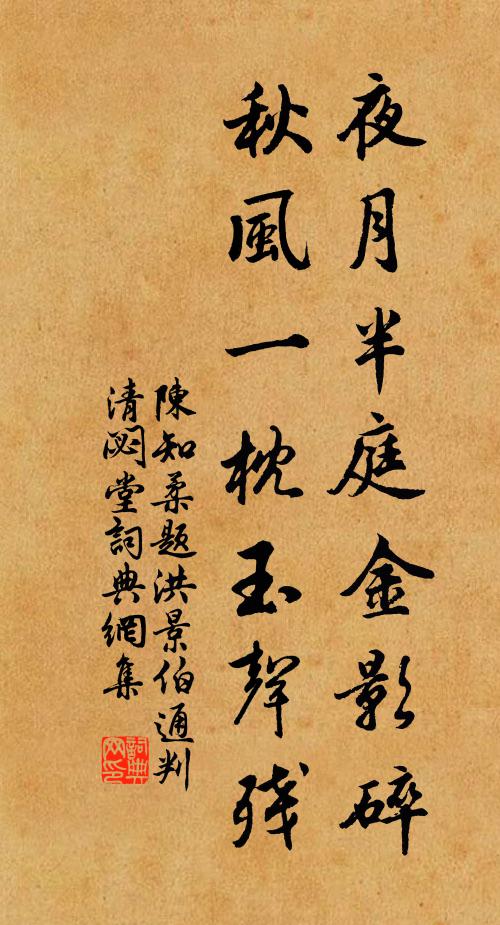 夜月半庭金影碎
秋風一枕玉聲残
陳知柔題洪景伯通判
清閟堂詞典網集
詞典網印